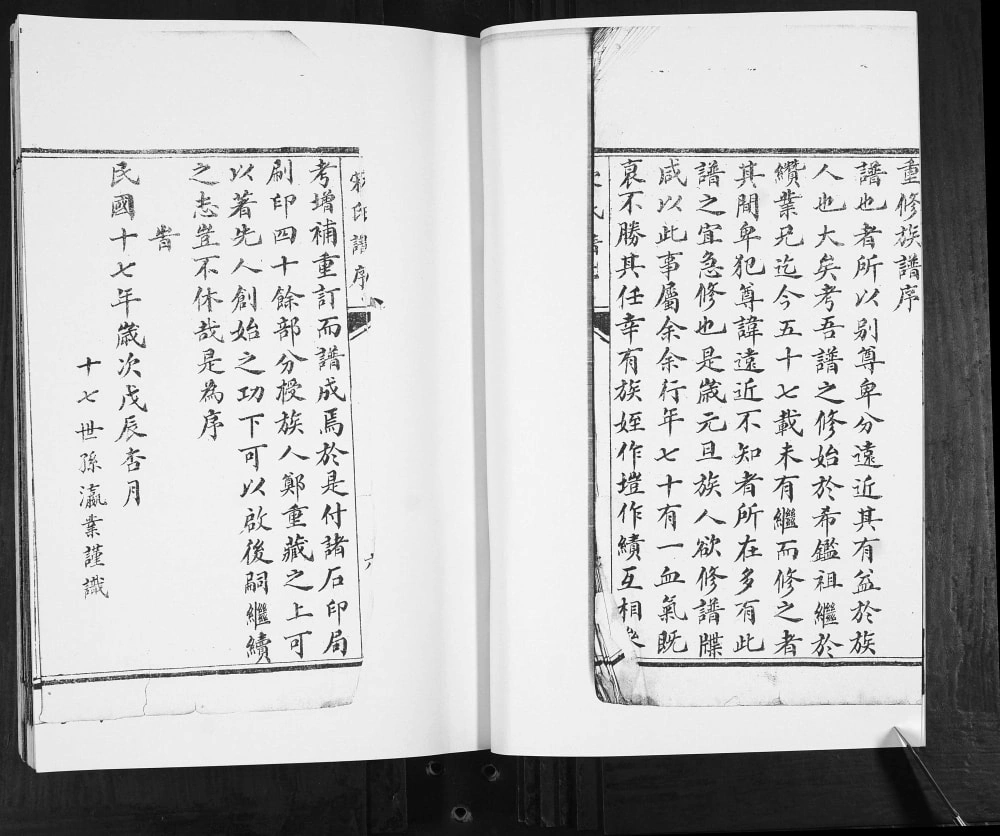 重修族譜序
譜也者所以別尊卑分遠近其有益於族
人也大矣考吾譜之修始於希鑑祖繼於
纘業兄迄今五十七載未有繼而修之者
其間卑犯尊諱遠近不知者所在多有此
譜之宜急修也是歲元旦族人欲修譜牒
咸以此事屬余余行年七十有一血氣既
衰不勝其任幸有族姪作塏作績互相參
氏
印譜序
六
考增補重訂而譜成焉於是付諸石印局
刷印四十餘部分授族人鄭重藏之上可
以著先人創始之功下可以啟後嗣繼續
之志豈不休哉是為序
旹
民國十七年歲次戊辰杏月
十七世孫瀛業謹識